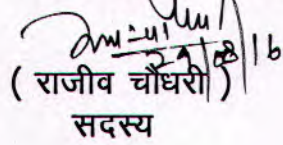 29/08/16
( राजीव चौधरी )
सदस्य